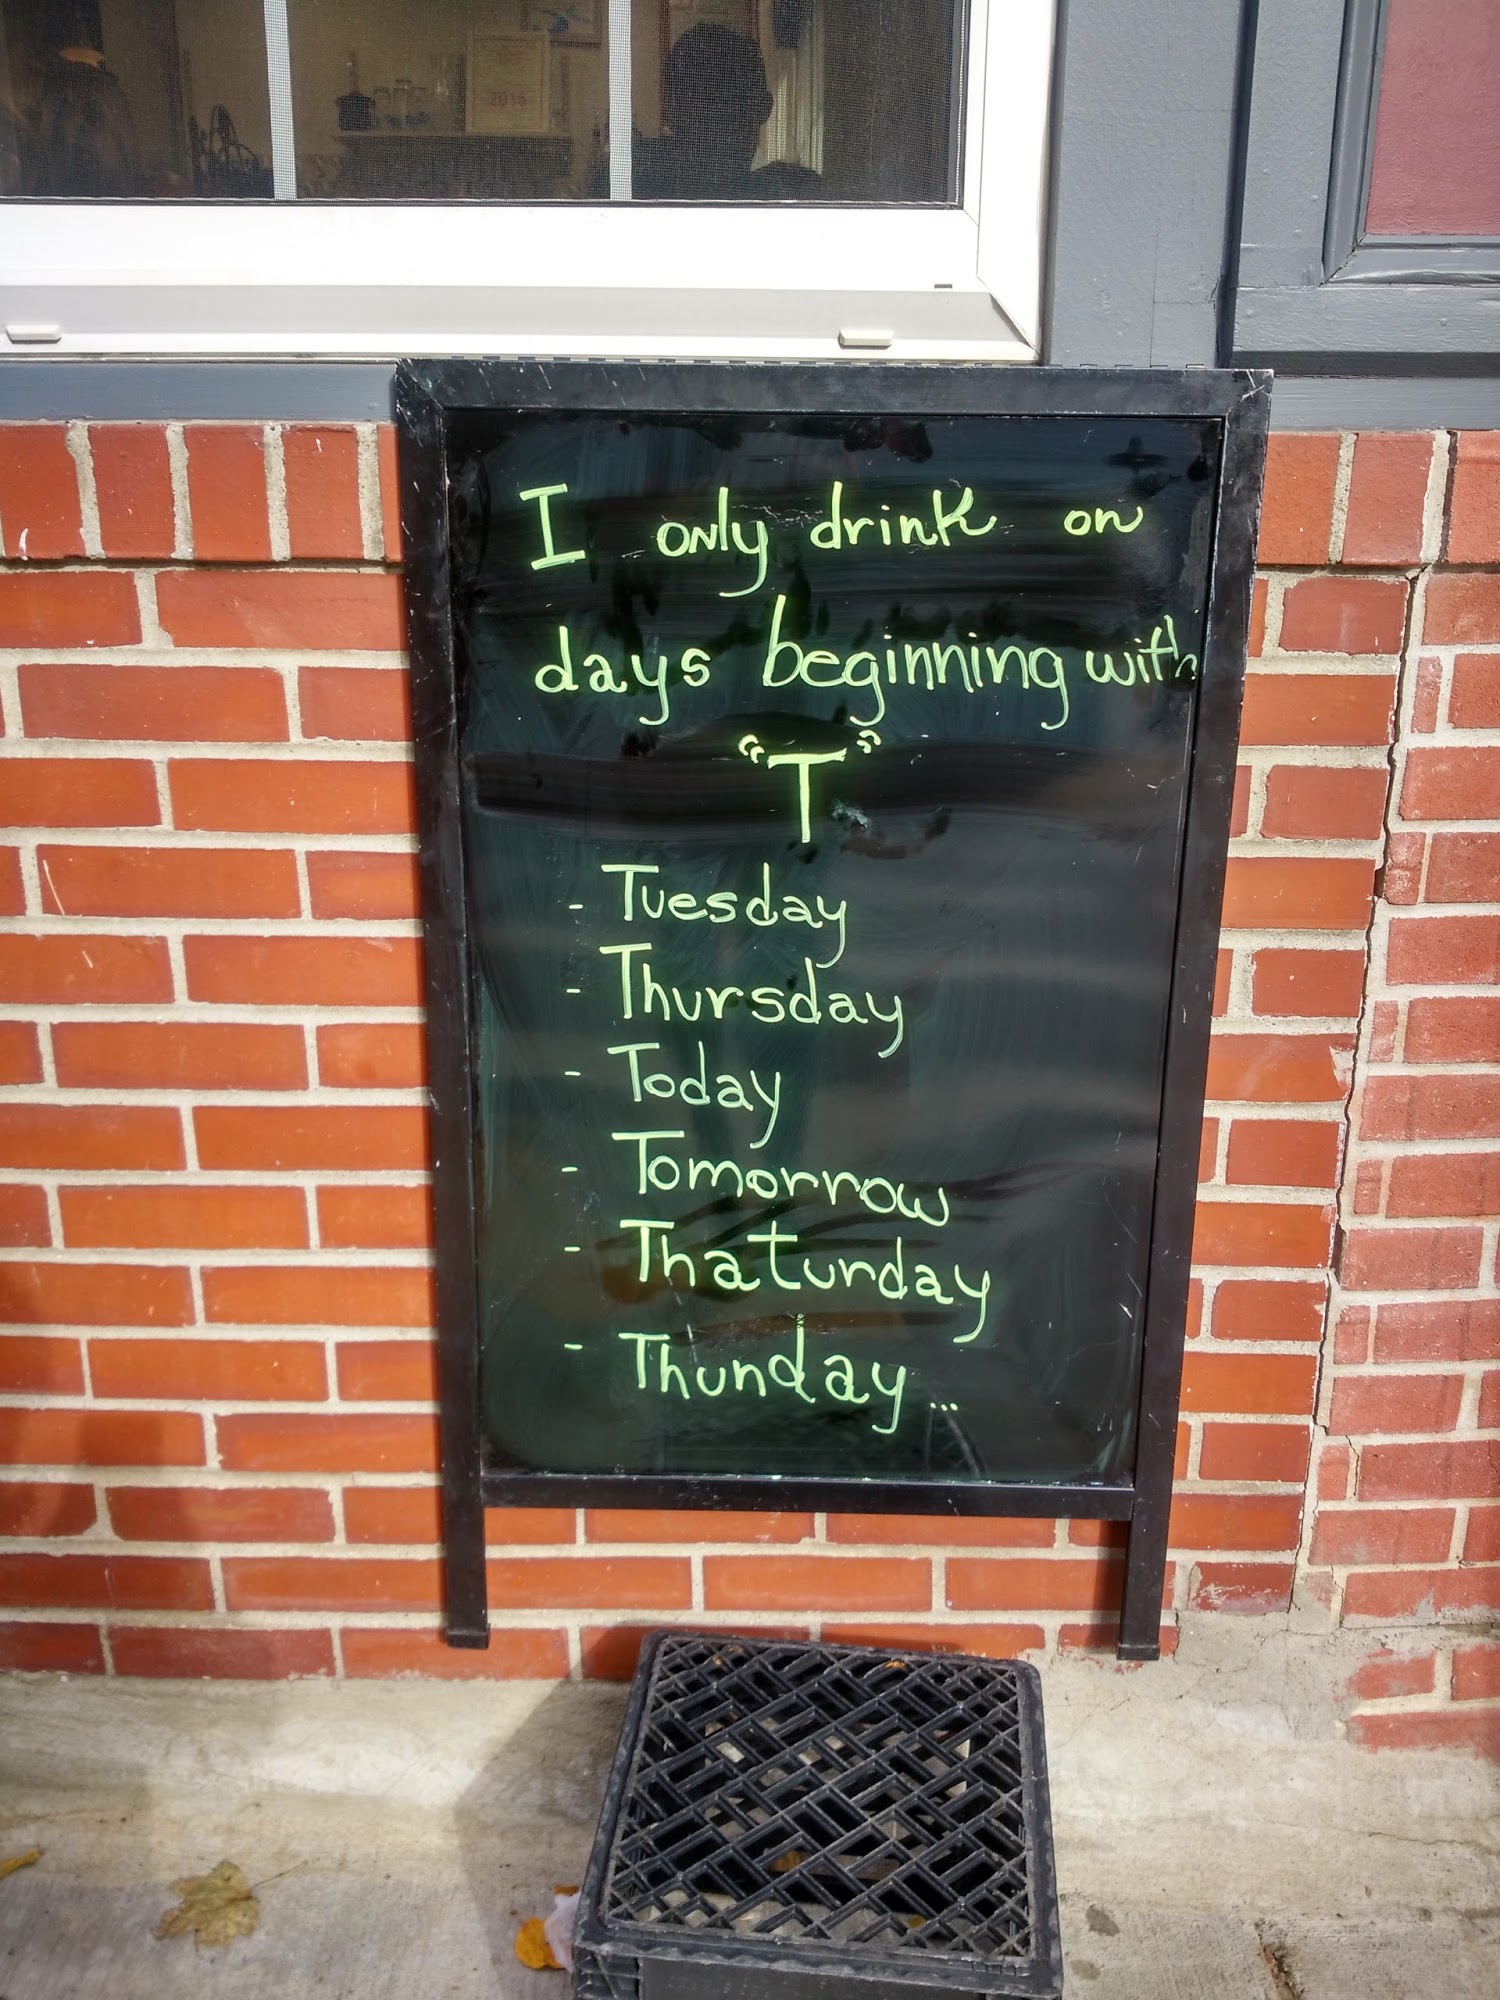 I only drink on
days beginning with
"T"
- Tuesday
- Thursday
- Today
- Tomorrow
- Thaturday
- Thunday...
2016